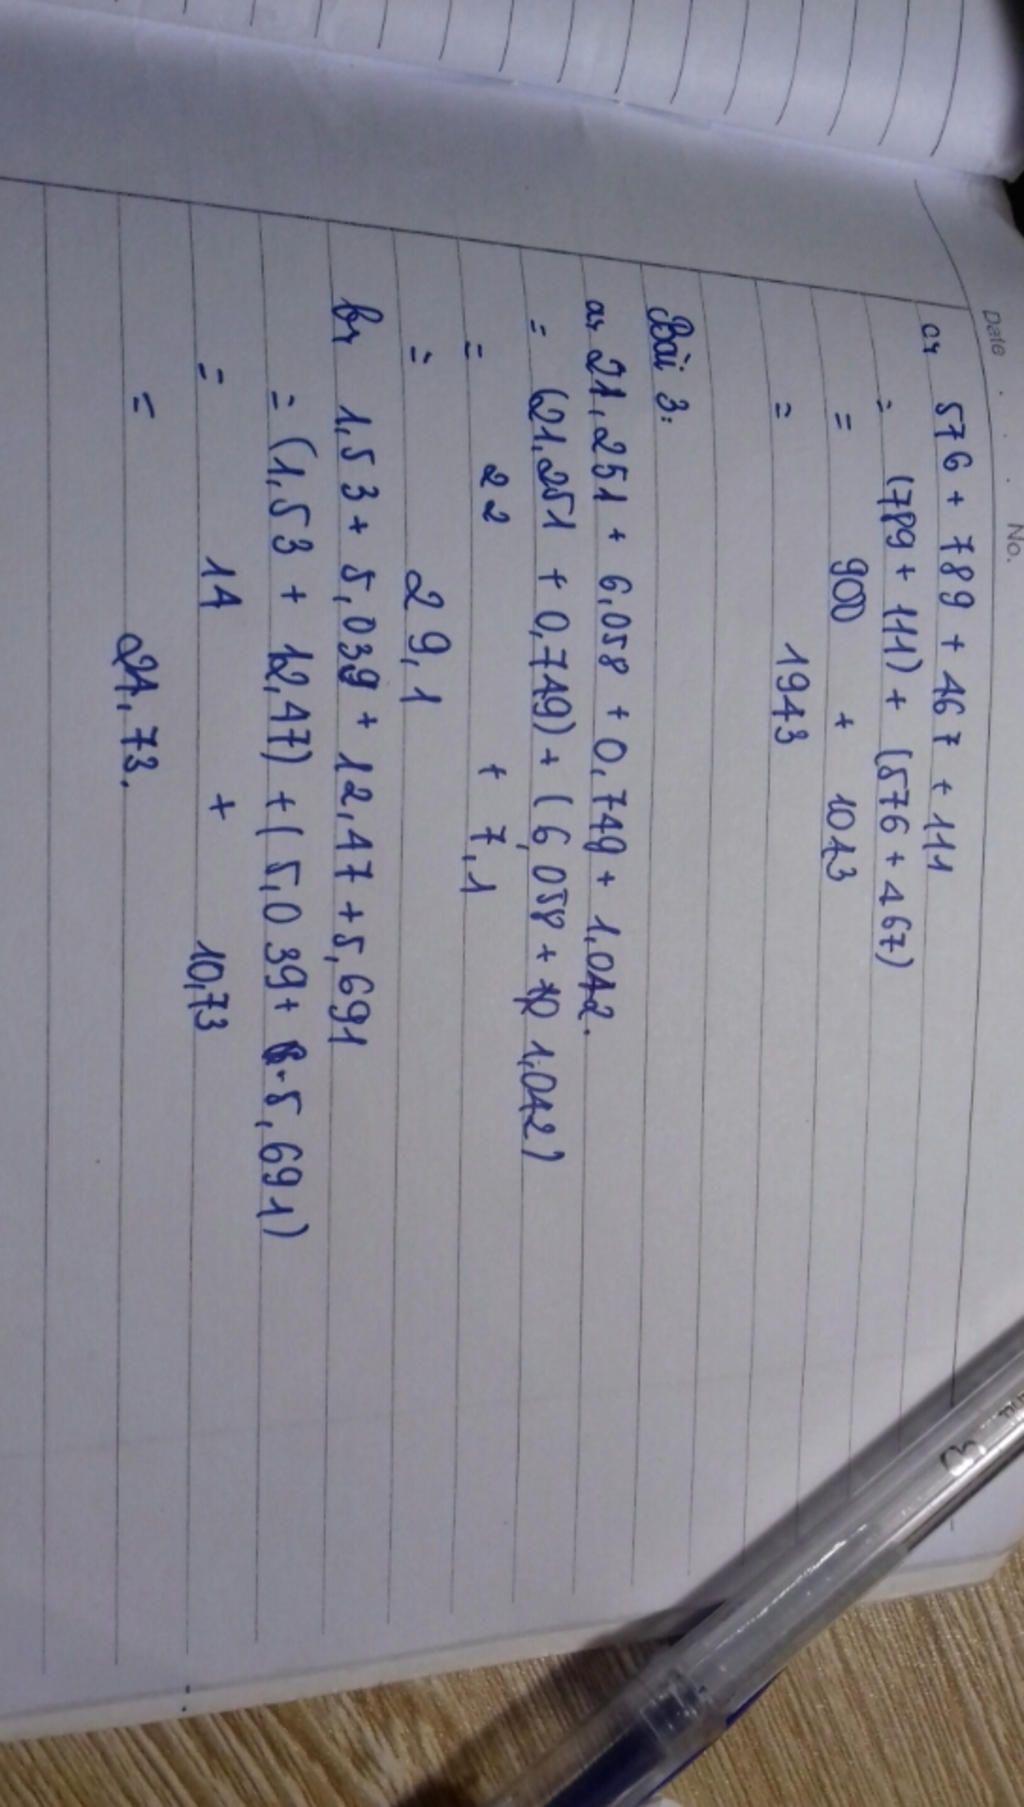 Date
No.
c, 576 + 789 + 467 + 111
= (789 + 111) + (576 + 467)
= 900 + 1043
= 1943
Bài 3:
a, 21,251 + 6,058 + 0,749 + 1,042.
= (21,251 + 0,749) + (6,058 + 1,042)
= 22 + 7,1
= 29,1
b, 1,53 + 5,039 + 12,47 + 5,691
= (1,53 + 12,47) + (5,039 + 5,691)
= 14 + 10,73
= 24,73.